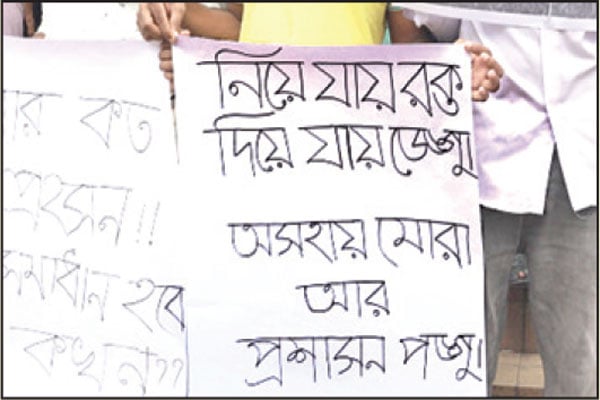 র কত
প্রহসন!!
সমাধান হবে
কখন??
নিয়ে যায় রক্ত
দিয়ে যায় ডেঙ্গু।
অসহায় মোরা
আর
প্রশাসন পঙ্গু।